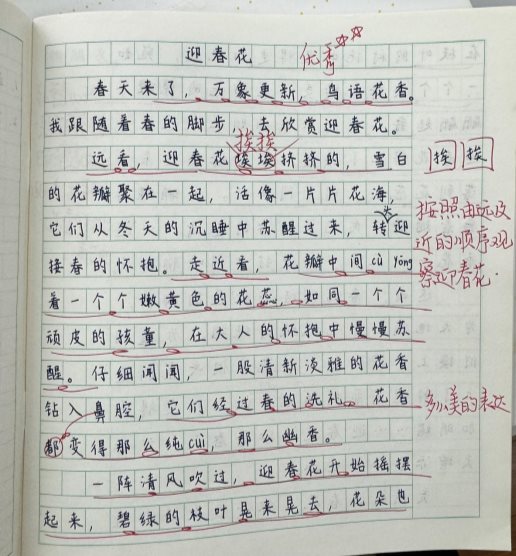 迎春花
优秀
春天来了，万象更新，鸟语花香。
我跟随着春的脚步，去欣赏迎春花。
挨挨
远看，迎春花埃埃挤挤的，雪白
挨 挨
的花瓣聚在一起，活像一片片花海，
它们从冬天的沉睡中苏醒过来，转迎
接春的怀抱。走近看，花瓣中间cù yōng
着一个个嫩黄色的花蕊，如同一个个
按照由远及
近的顺序观
察迎春花。
顽皮的孩童，在大人的怀抱中慢慢苏
醒。仔细闻闻，一股清新淡雅的花香
钻入鼻腔，它们经过春的洗礼。花香
多么美的表达
都变得那么纯cuì，那么幽香。
一阵清风吹过，迎春花开始摇摆
起来，碧绿的枝叶晃来晃去，花朵也